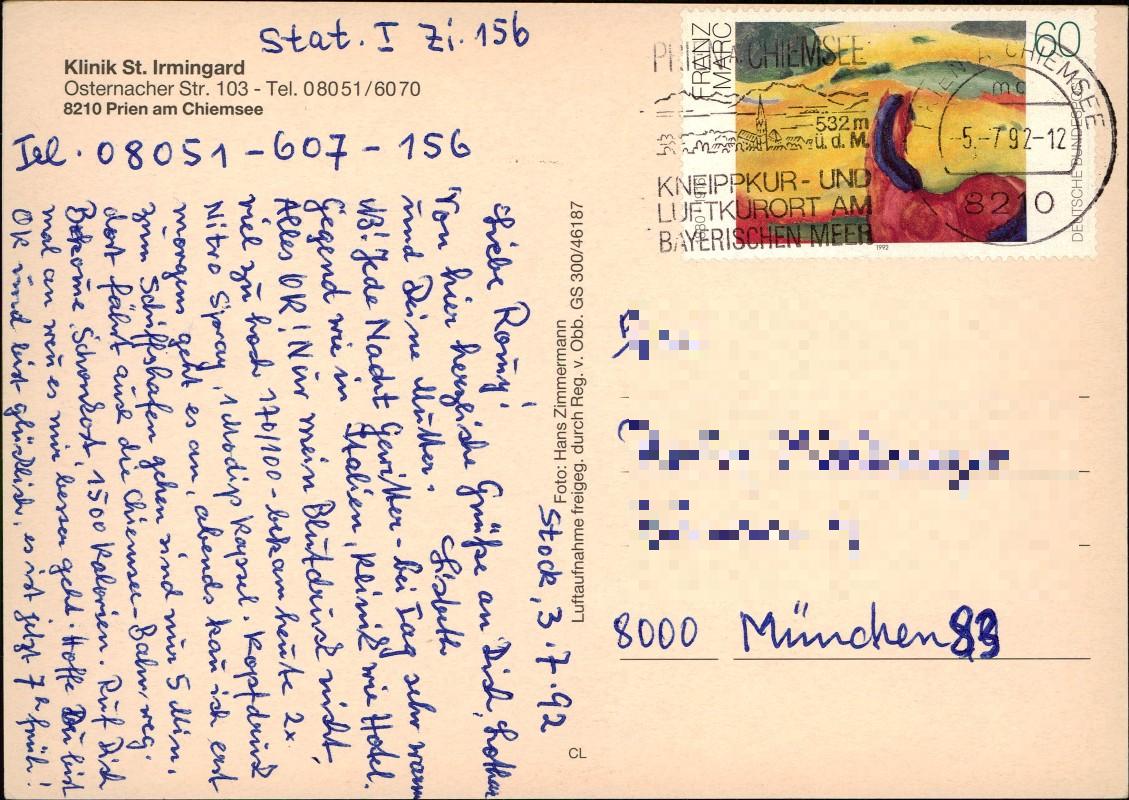 Stat. I Zi. 156
Klinik St. Irmingard
Osternacher Str. 103 - Tel. 08051/6070
8210 Prien am Chiemsee
Tel. 08051-607-156
Stock, 3.7.92
Liebe Romy!
Von hier herzliche Grüße an Dich, Lothar
und Deine Mutter. Lisbeth
NB! Jede Nacht Gewitter - bei Tag sehr warm
Gegend wie in Italien, Klinik wie Hotel.
Alles OK! Nur mein Blutdruck nicht,
viel zu hoch 170/100 - bekam heute 2x
Nitro Spray, 1 Modip Kapsel. Kopfdruck
morgens geht es an, abends kan ich erst
zum Schiffshafen gehen sind nur 5 Min.
dort fährt auch die Chiemsee-Bahn weg.
Bekome Schonkost, 1500 Kalorien. Ruf Dich
mal an wen es mir besser geht. Hoffe Du bist
OK und bist glücklich, es ist jetzt 7h früh!
Foto: Hans Zimmermann
Luftaufnahme freigeg. durch Reg. v. Obb. GS 300/46187
CL
FRANZ
MARC
60
DEUTSCHE BUNDESPOST
1992
PRIEN A. CHIEMSEE
532 m
ü. d. M.
KNEIPPKUR- UND
LUFTKURORT AM
BAYERISCHEN MEER
PRIEN A. CHIEMSEE
-5.-7.92-12
8210
8000 München 83